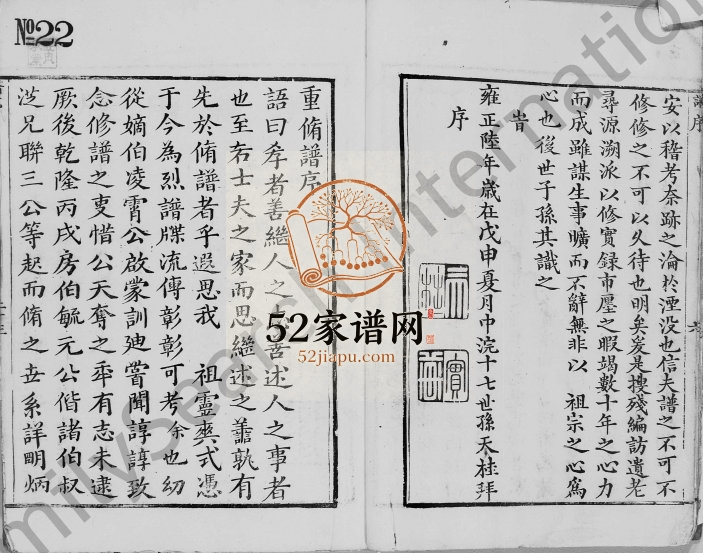 №22
譜序
安以稽考奈跡之淪於湮没也信夫譜之不可不
修修之不可以久待也明矣爰是搜殘編訪遺老
尋源溯派以修實録市廛之暇竭數十年之心力
而成雖謀生事曠而不辭無非以 祖宗之心為
心也後世子孫其識之
旹
雍正陸年歲在戊申夏月中浣十七世孫天桂拜
序
重脩譜序
語曰孝者善繼人之 善述人之事者
也至若士夫之家而思繼述之善孰有
先於脩譜者乎遐思我 祖靈爽式憑
于今為烈譜牒流傳彰彰可考余也幼
從嫡伯凌霄公啟蒙訓廸嘗聞諄諄致
念修譜之叓惜公天奪之 有志未逮
厥後乾隆丙戌房伯毓元公偕諸伯叔
芝兄聯三公等起而脩之世系詳明炳
52家谱网
52jiapu.com
FamilySearch International